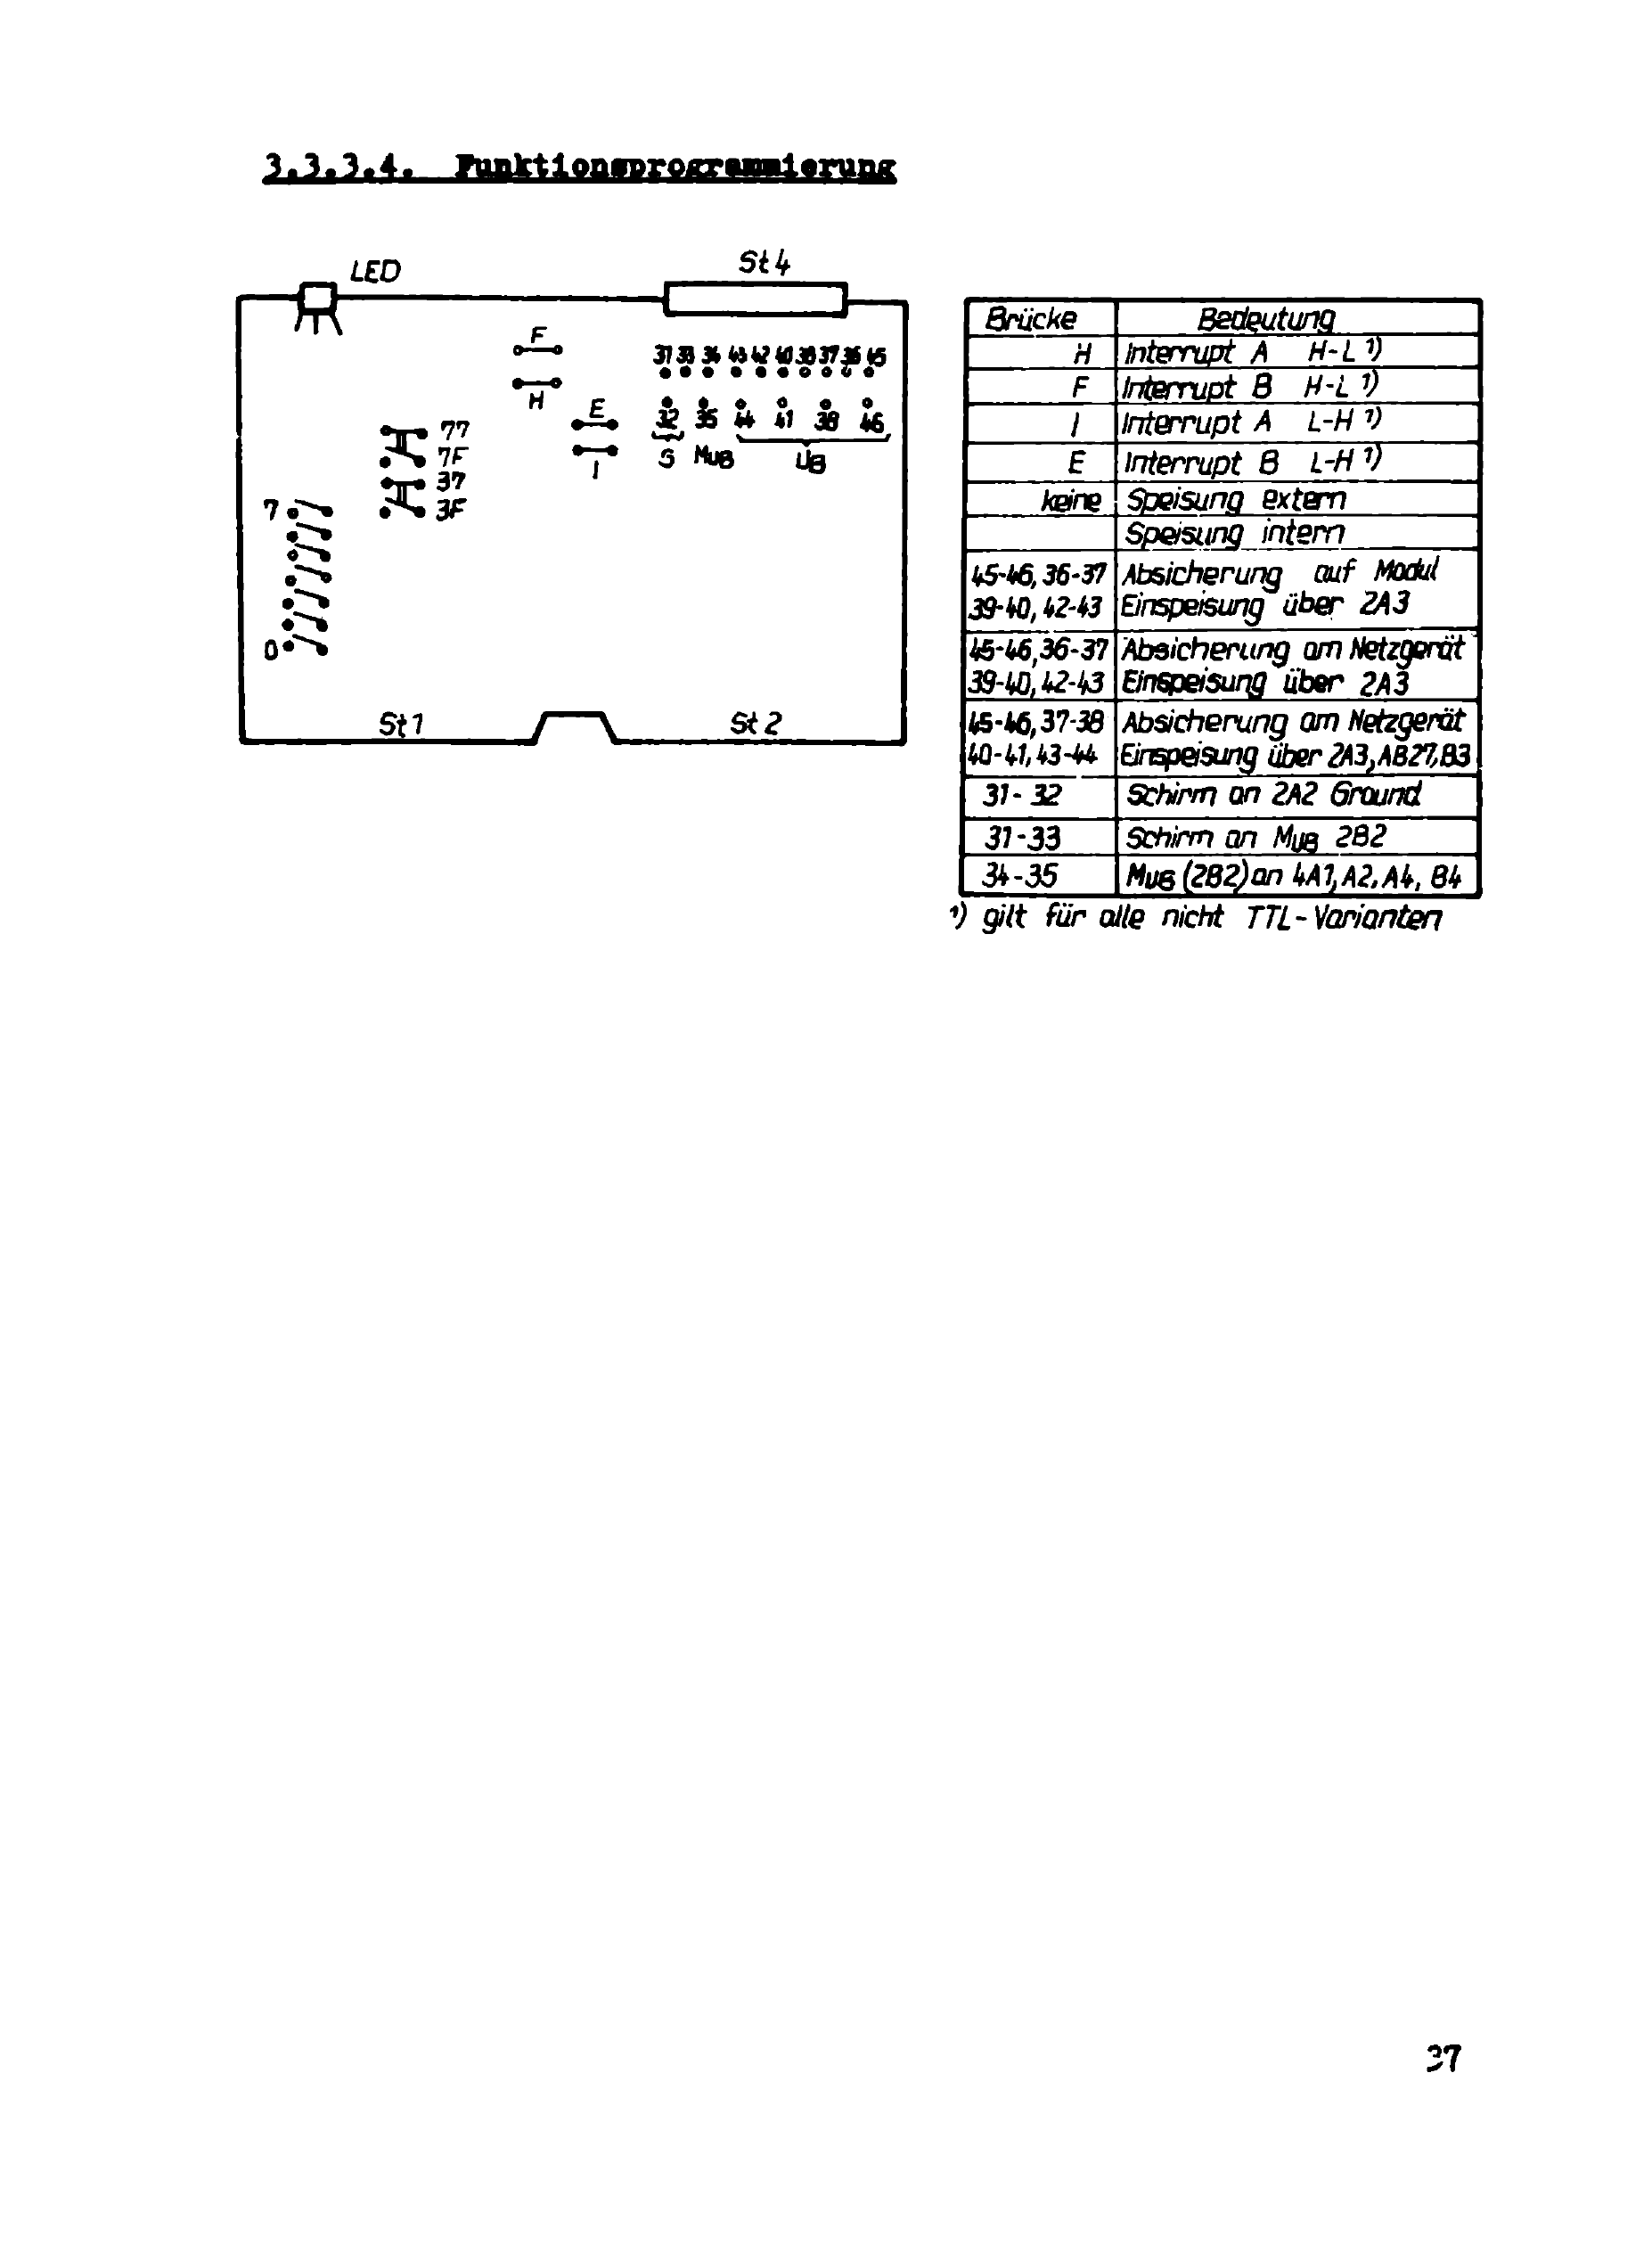 3.3.3.4. Funktionsprogrammierung
LED
St4
F
H
E
I
31 33 34 43 42 40 39 37 36 45
32 35 44 41 38 46
S MUB UB
77
7F
37
3F
7
0
St1
St2
Brücke Bedeutung
H Interrupt A H-L 1)
F Interrupt B H-L 1)
I Interrupt A L-H 1)
E Interrupt B L-H 1)
keine Speisung extern
Speisung intern
45-46, 36-37 Absicherung auf Modul
39-40, 42-43 Einspeisung über 2A3
45-46, 36-37 Absicherung am Netzgerät
39-40, 42-43 Einspeisung über 2A3
45-46, 37-38 Absicherung am Netzgerät
40-41, 43-44 Einspeisung über 2A3, AB27, B3
31-32 Schirm an 2A2 Ground
31-33 Schirm an MUB 2B2
34-35 MUB (2B2) an 4A1, A2, A4, B4
1) gilt für alle nicht TTL-Varianten
37